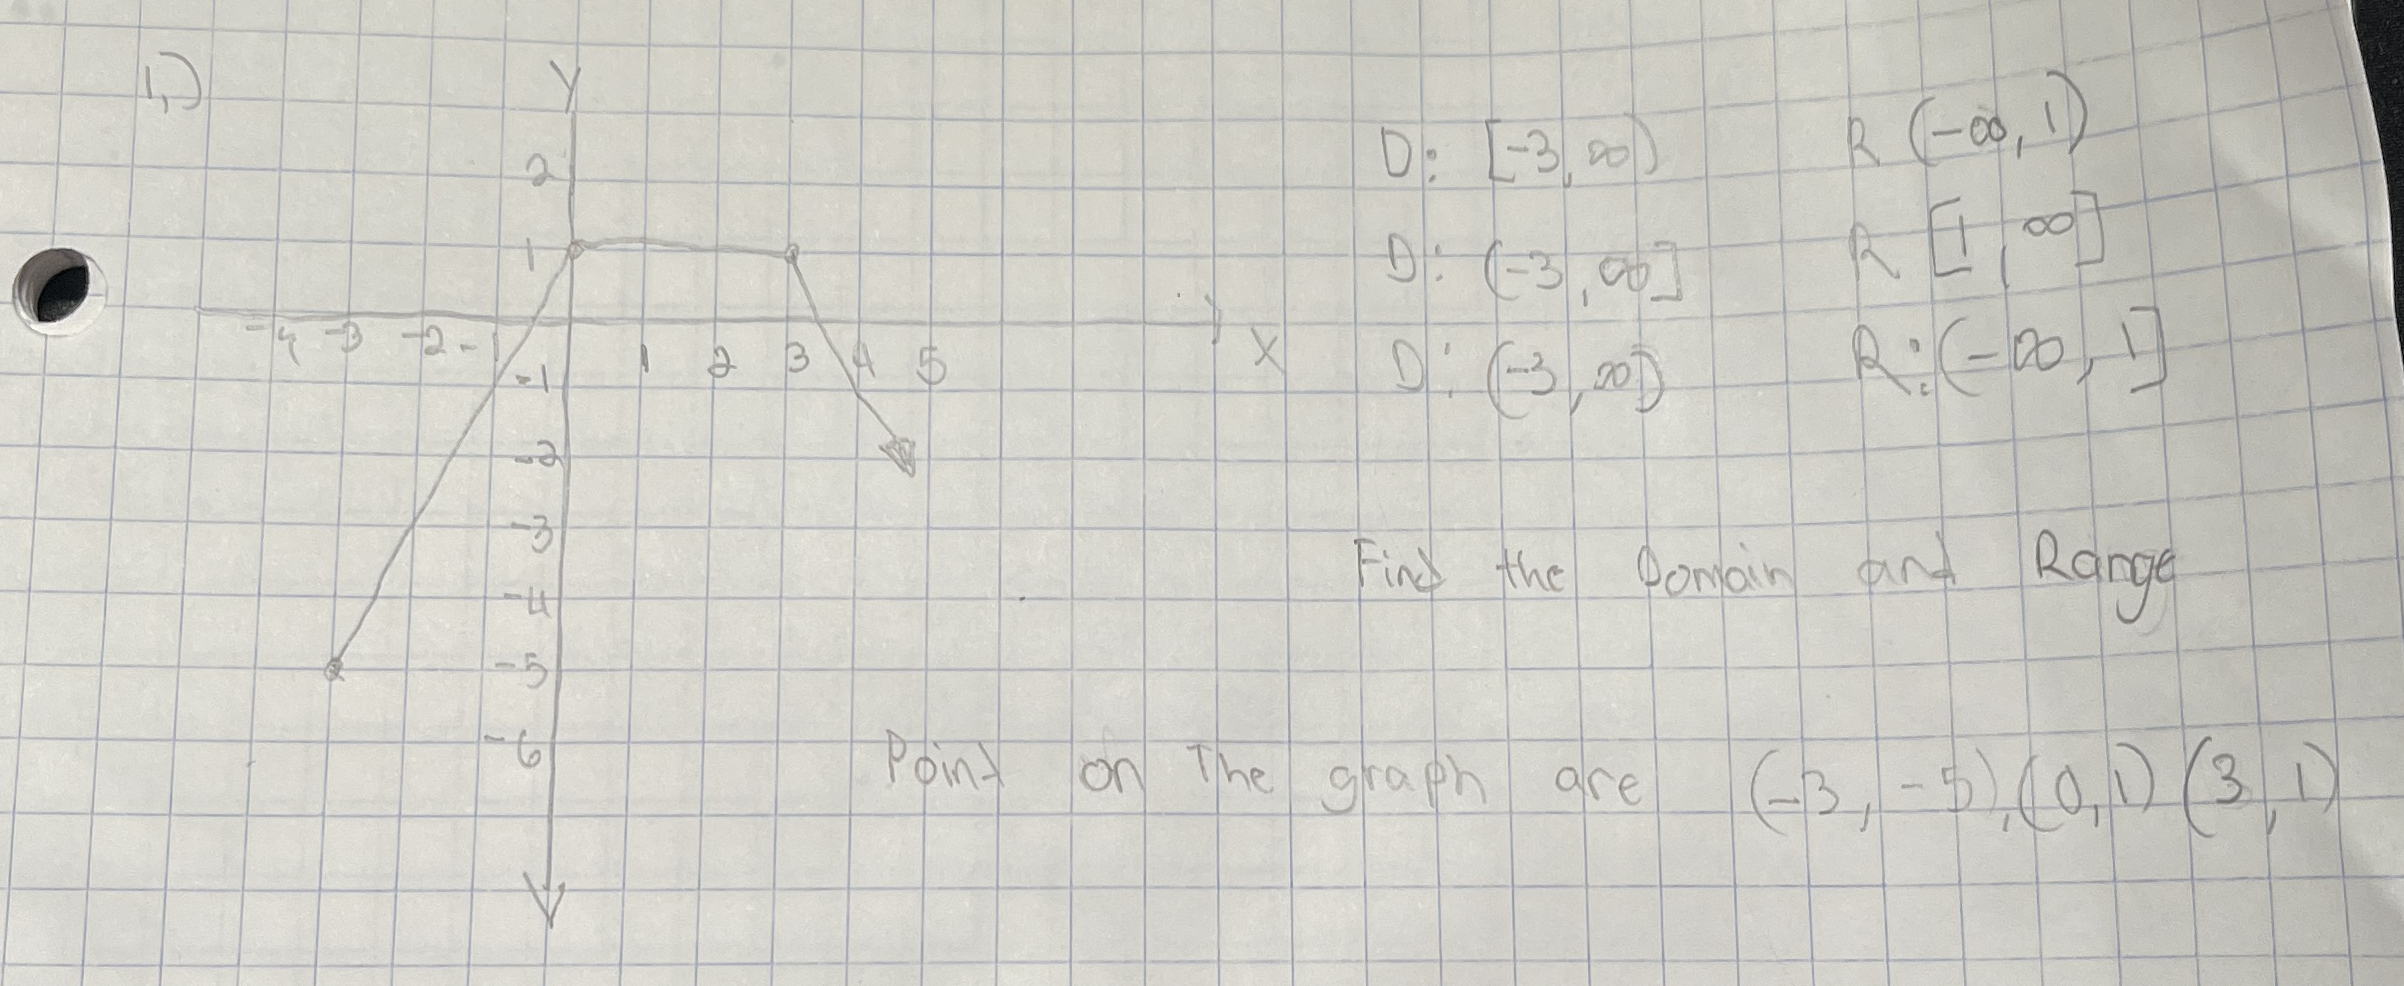 1.)
Y
2
1
-4 -3 -2 -1 1 2 3 4 5 X
-1
-2
-3
-4
-5
-6
D: [-3, ∞) R (-∞, 1)
D: (-3, ∞] R [1, ∞]
D: (-3, ∞) R: (-∞, 1]
Find the Domain and Range
Point on The graph are (-3, -5), (0, 1) (3, 1)